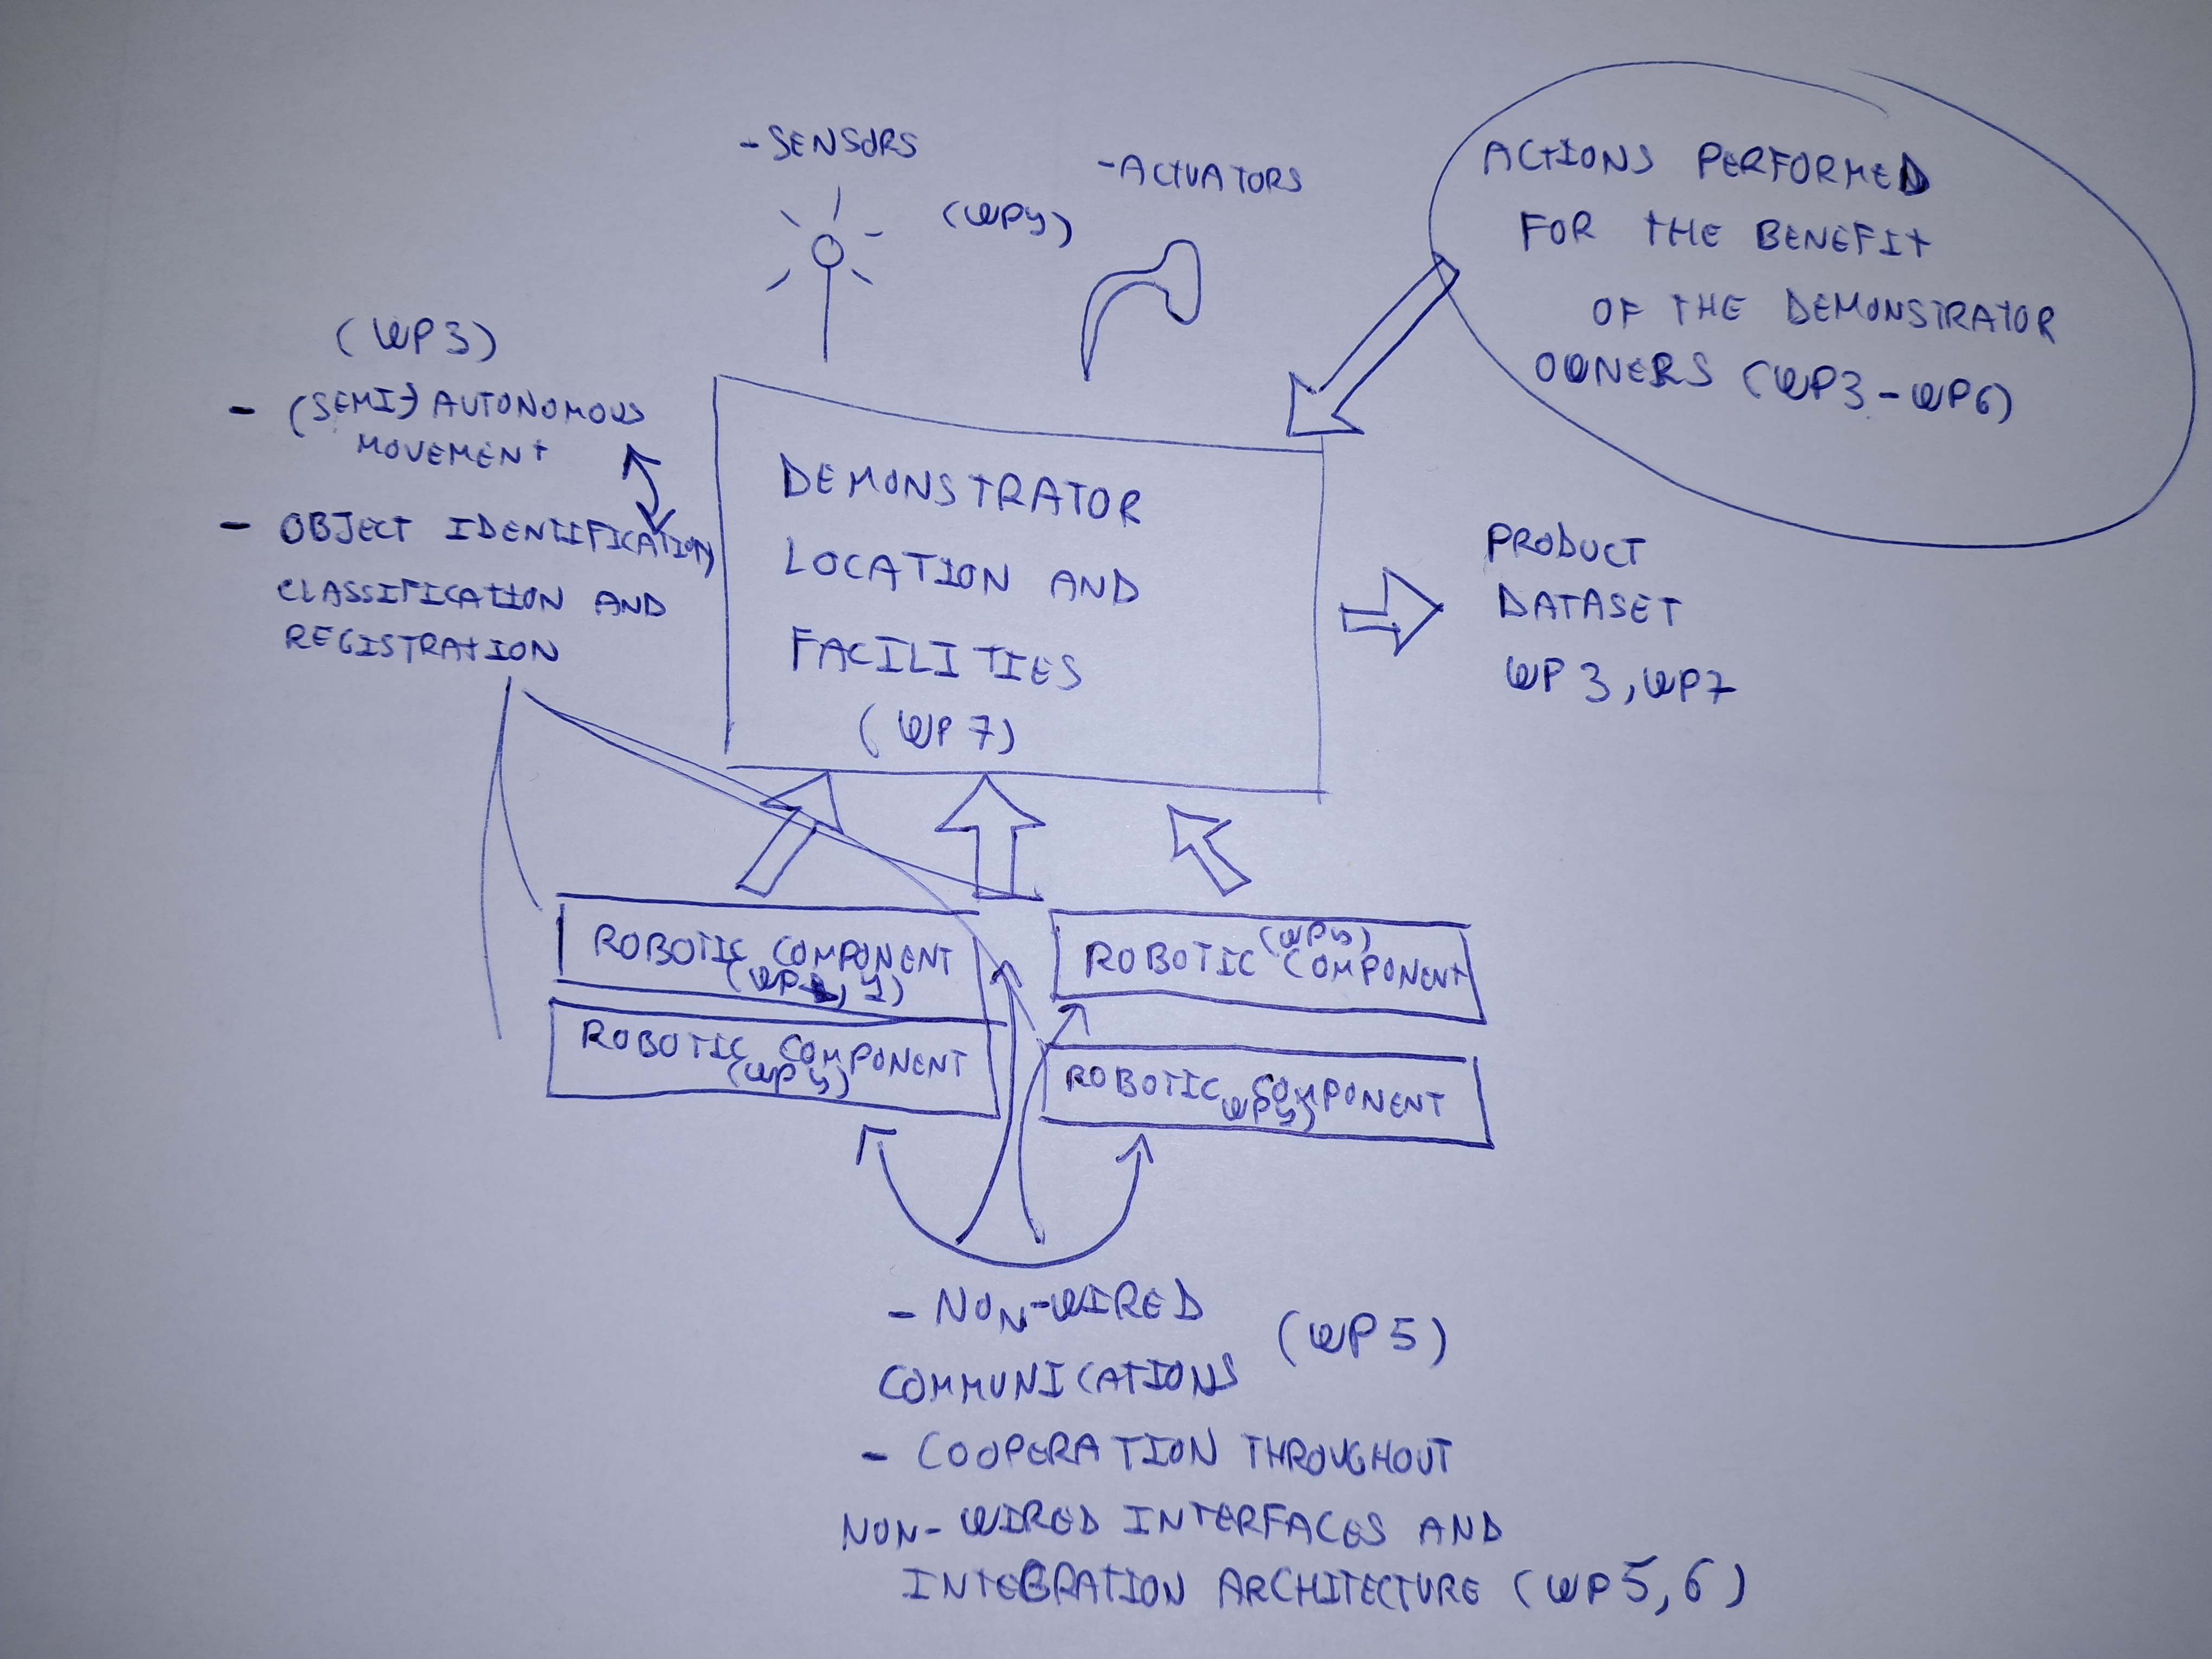 - SENSORS
- ACTUATORS
(WP4)
ACTIONS PERFORMED
FOR THE BENEFIT
OF THE DEMONSTRATOR
OWNERS (WP3-WP6)
(WP3)
- (SEMI-) AUTONOMOUS
MOVEMENT
- OBJECT IDENTIFICATION,
CLASSIFICATION AND
REGISTRATION
DEMONSTRATOR
LOCATION AND
FACILITIES
(WP7)
PRODUCT
DATASET
WP3, WP7
ROBOTIC COMPONENT
ROBOTIC COMPONENT
(WP4)
ROBOTIC COMPONENT
(WP4)
ROBOTIC COMPONENT
WP4)
- NON-WIRED
COMMUNICATIONS
(WP5)
- COOPERATION THROUGHOUT
NON-WIRED INTERFACES AND
INTEGRATION ARCHITECTURE (WP5,6)